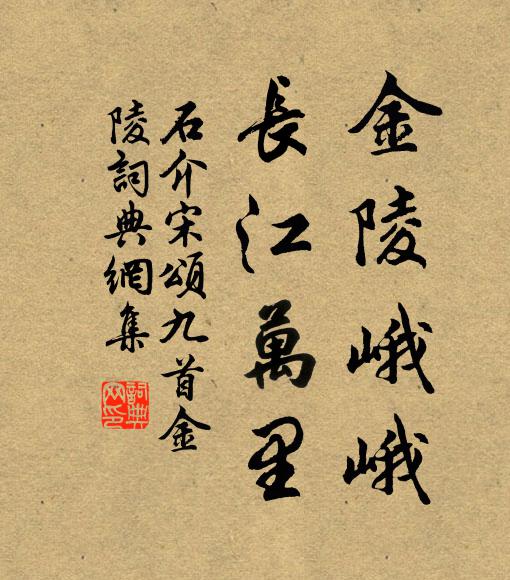 金陵峨峨
長江萬里
石介宋頌九首金
陵詞典網集
詞典
网印